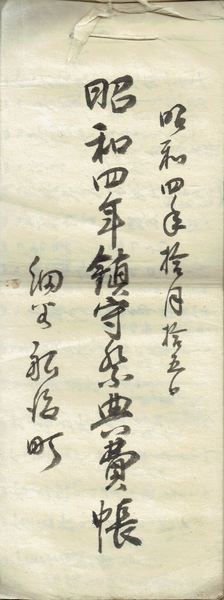 昭和四年拾月拾五日
昭和四年鎮守祭典費帳
細谷 町